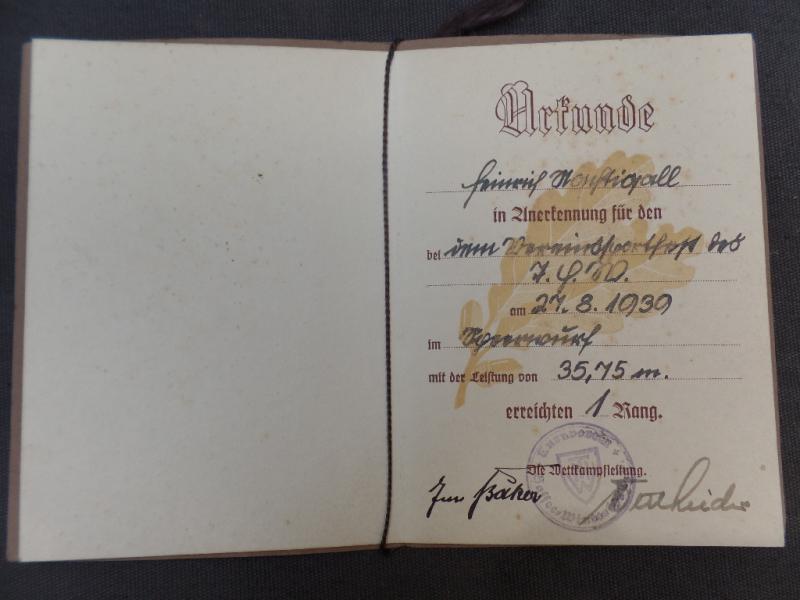 Urkunde
Heinrich Nachtigall
in Anerkennung für den
bei dem Vereinssportfest des
T. H. W.
am 27. 8. 1939
im Speerwurf
mit der Leistung von 35,75 m.
erreichten 1 Rang.
Die Wettkampfleitung.